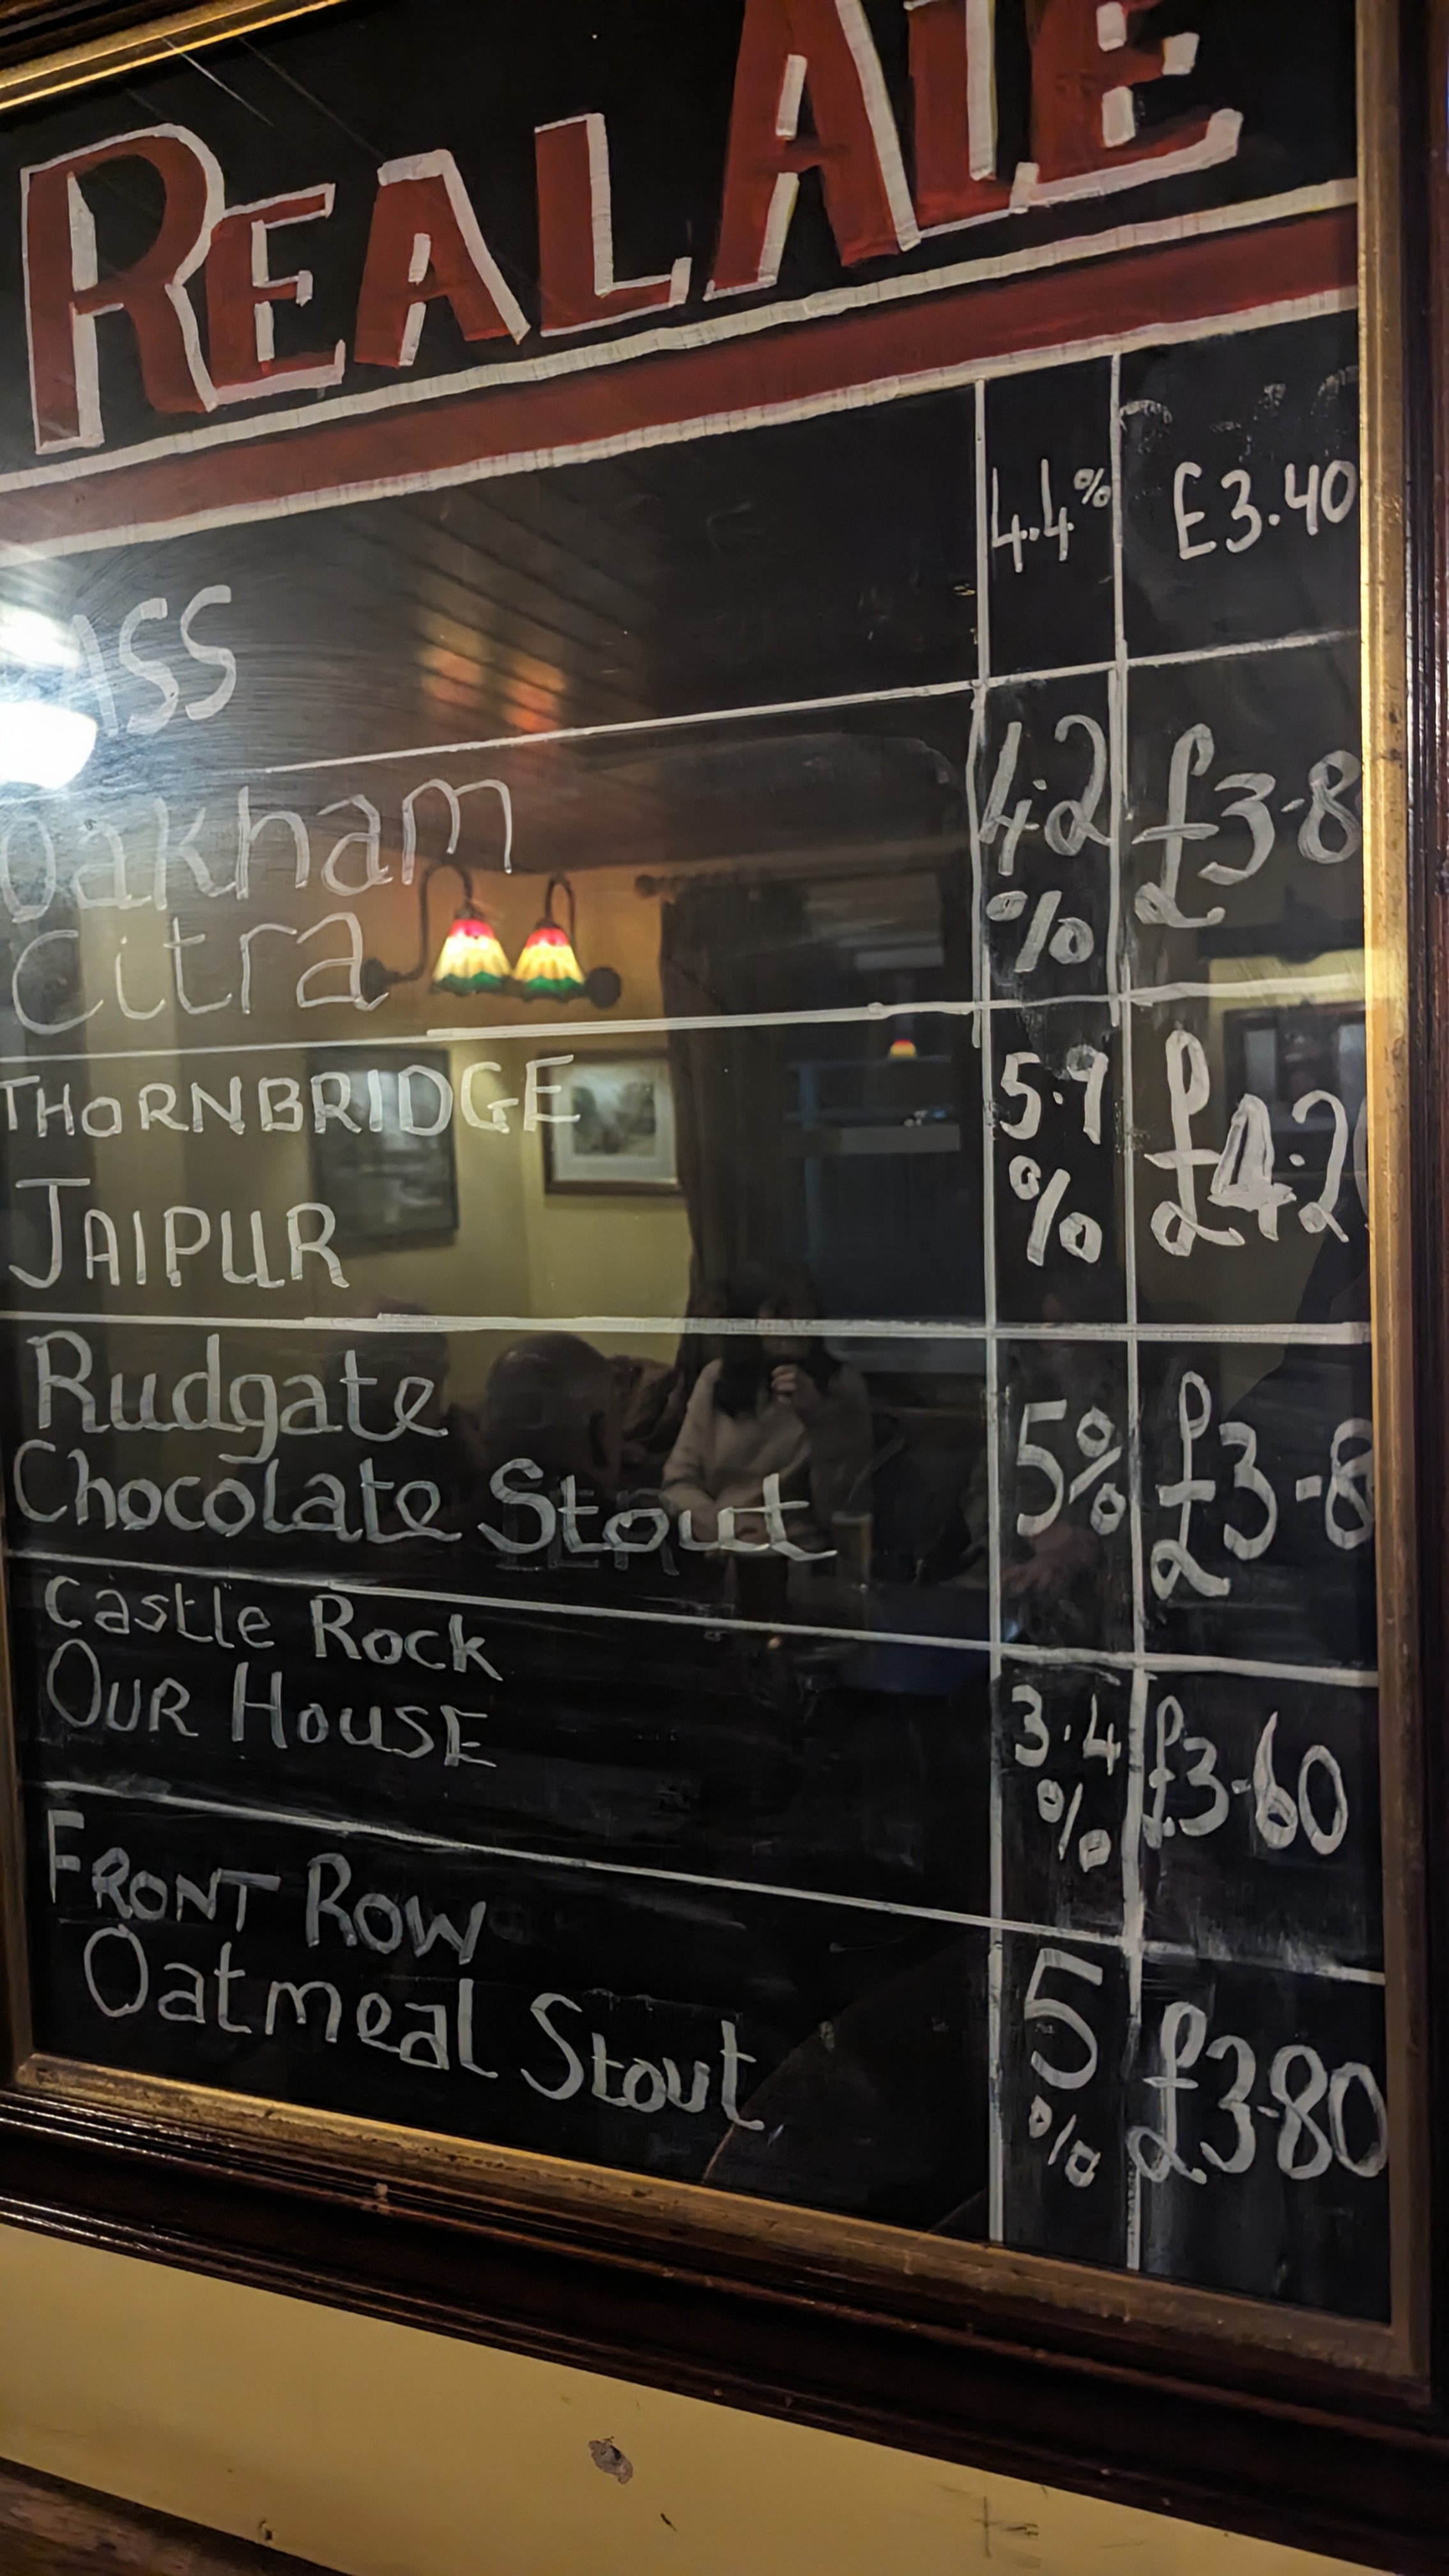 REAL ALE
BASS 4.4% £3.40
Oakham 4.2 £3-8
Citra %
THORNBRIDGE 5.9 £4.20
JAIPUR %
Rudgate 5% £3-8
Chocolate Stout
Castle Rock 3.4 £3-60
OUR HOUSE %
FRONT ROW 5 £3-80
Oatmeal Stout %